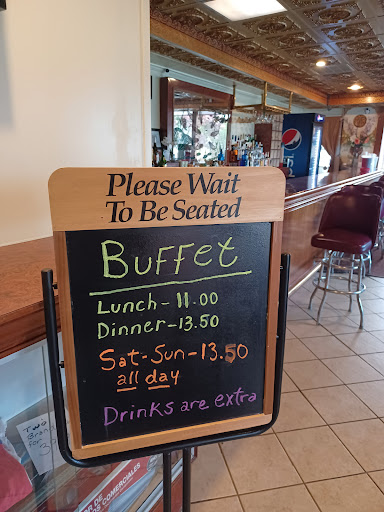 Please Wait
To Be Seated
Buffet
Lunch - 11.00
Dinner - 13.50
Sat - Sun - 13.50
all day
Drinks are extra
pepsi